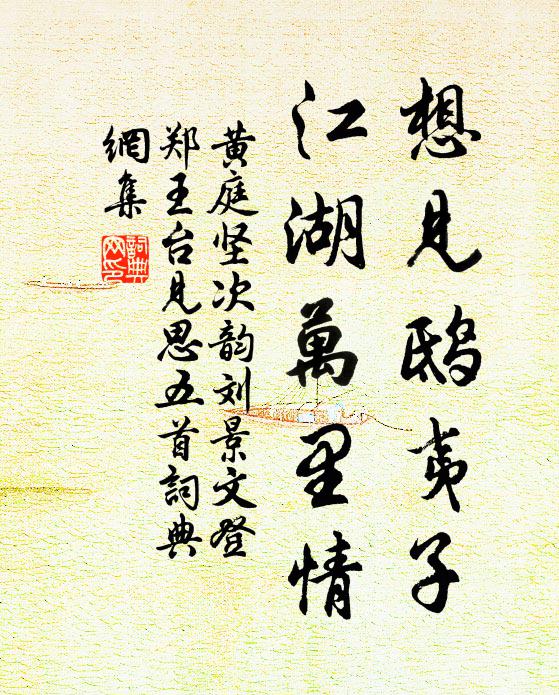 想見鴟夷子
江湖萬里情
黄庭坚次韵刘景文登
郑王台见思五首詞典
網集
詞典
网印